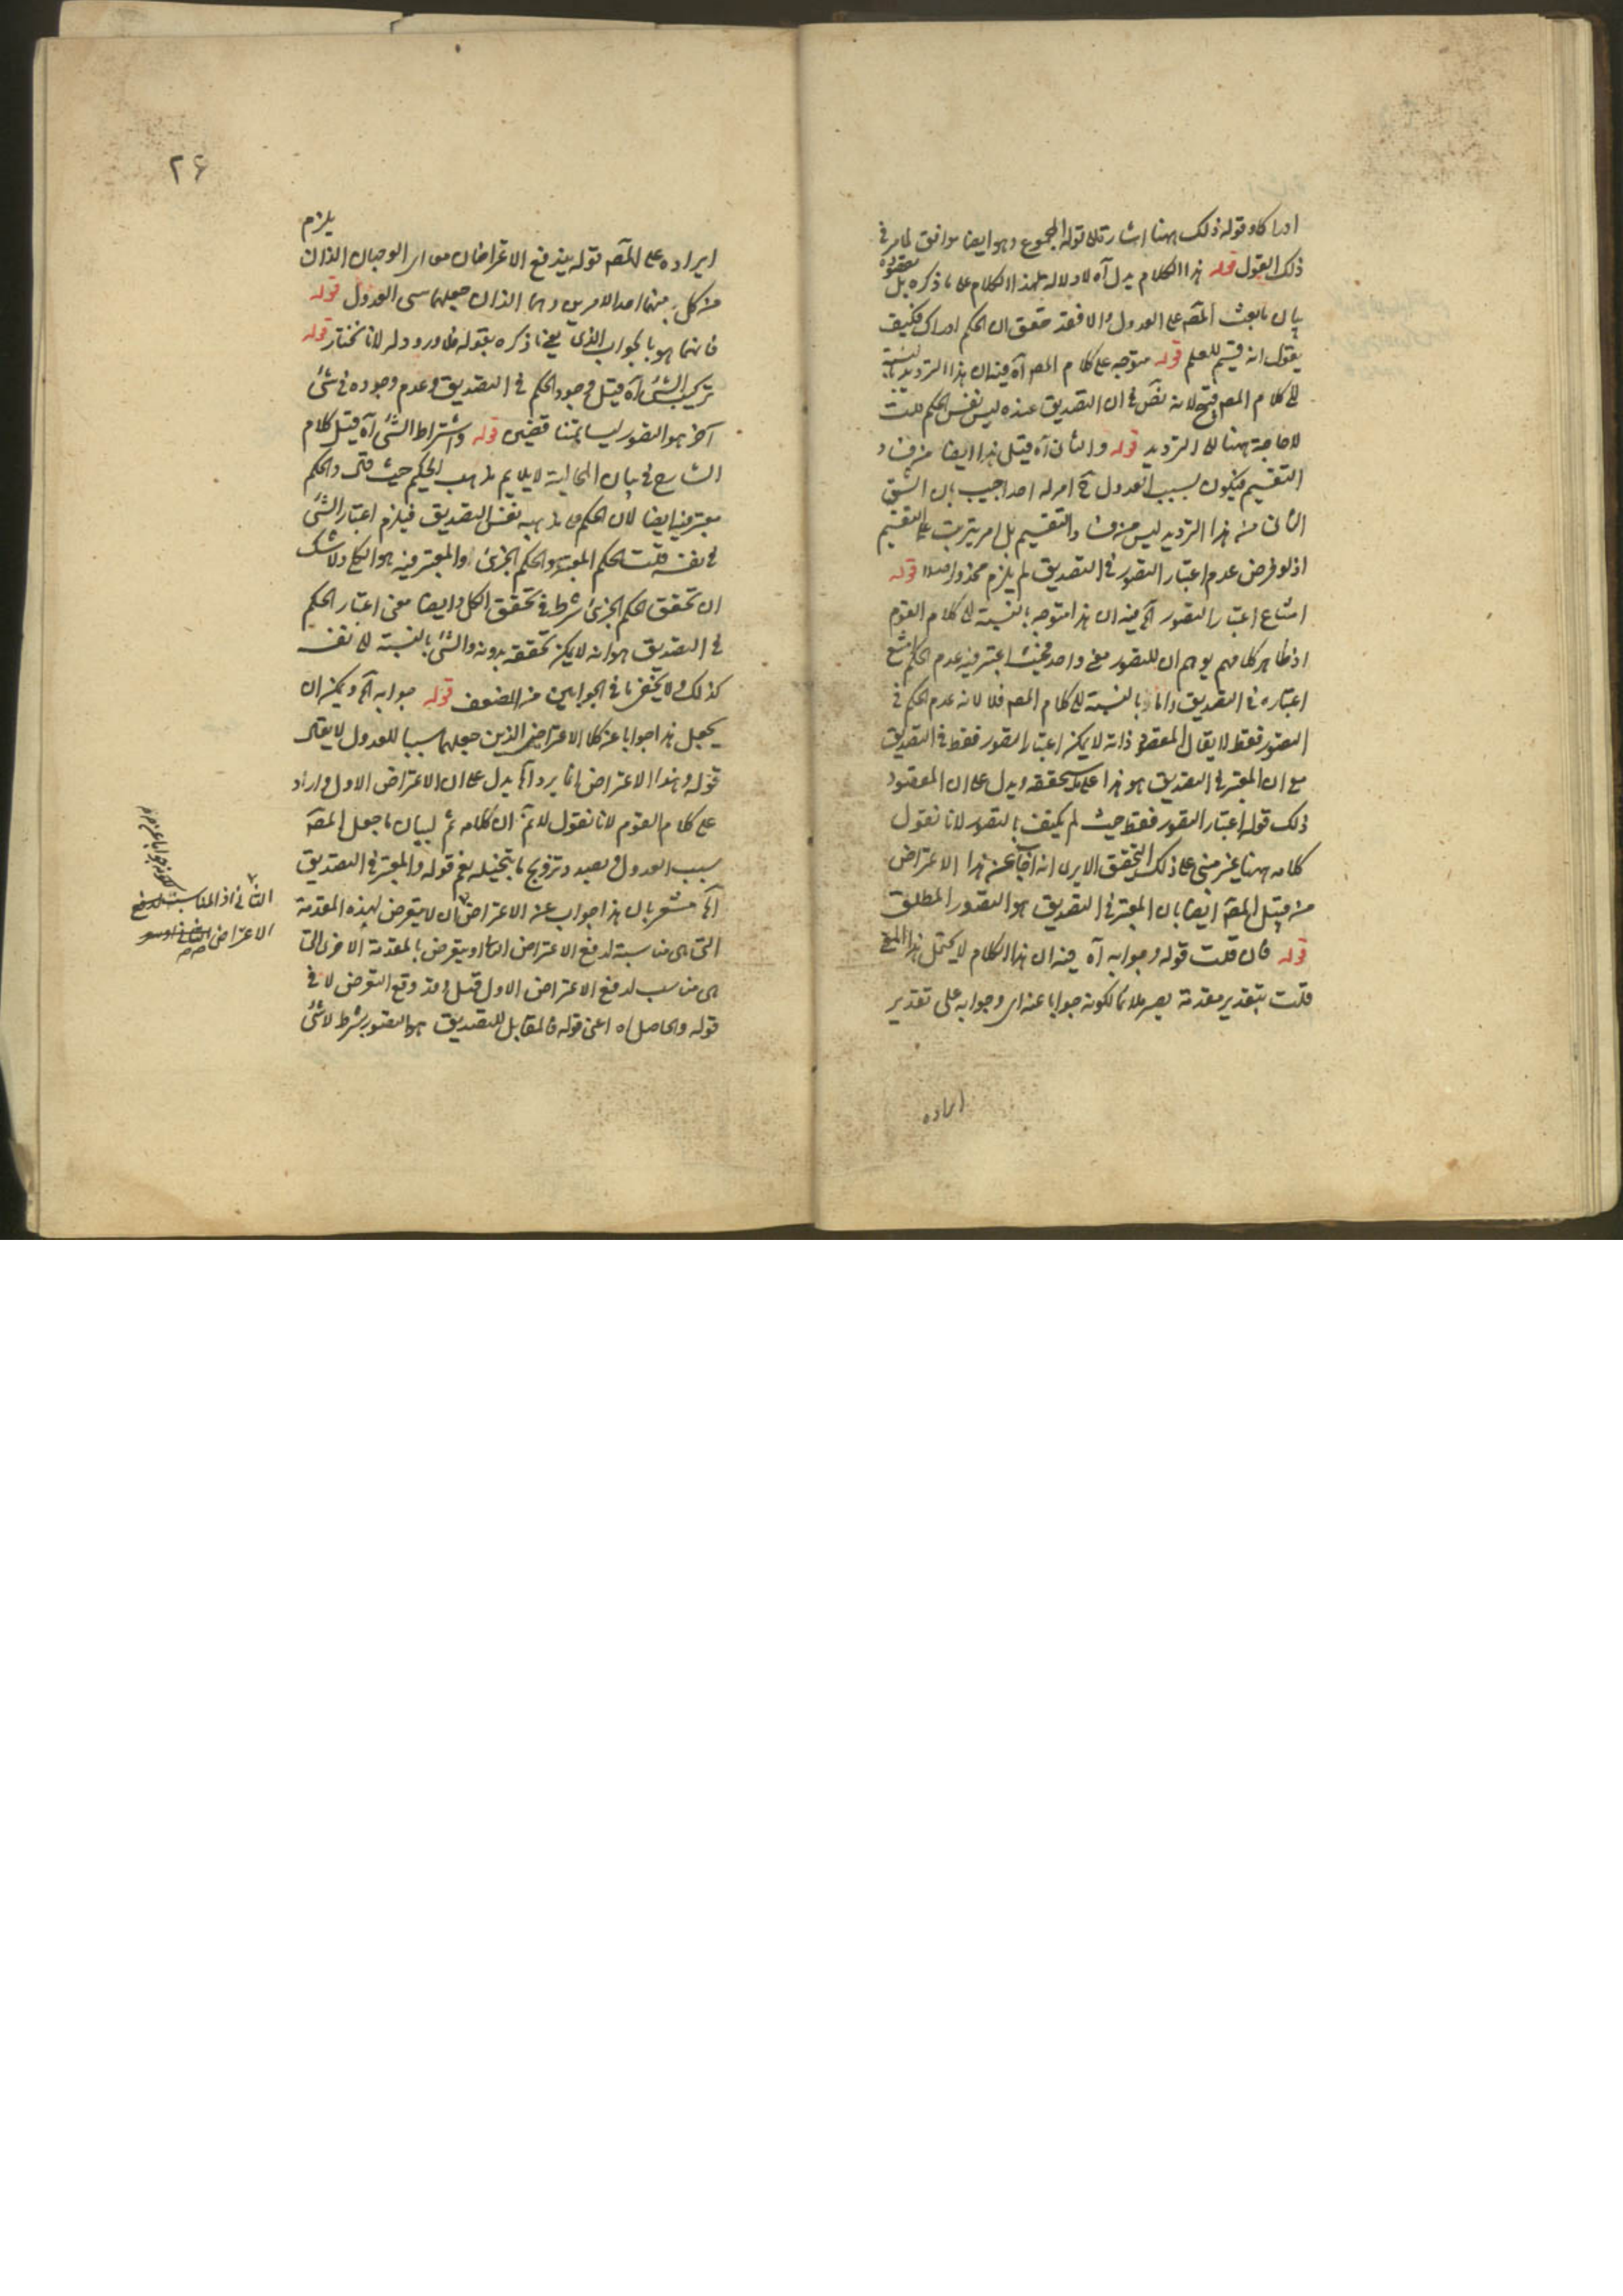 ادراكا وقوله ذلك ههنا اشارة الى قوله المجموع وهو ايضا موافق لما مر في
ذلك القول قوله هذا الكلام يدل آه لا دلالة لهذا الكلام على ما ذكره بل مقصوده
بيان ما بعث المصه على العدول والا فقد حقق ان الحكم ادراك فكيف
يقول انه قسيم للعلم قوله متوجه على كلام المصه آه فيه ان هذا الترديد بالنسبة
الى كلام المصه قبيح لانه نص في ان التصديق عنده ليس نفس الحكم قلت
لا حاجة ههنا الى الترديد قوله والثاني آه قيل هذا ايضا من فساد
التقسيم فيكون لسبب العدول ح امر له احد اجيب بان الشق
الثاني من هذا الترديد ليس من فساد التقسيم بل امر يترتب على التقسيم
اذ لو فرض عدم اعتبار التصور في التصديق لم يلزم محذور اصلا قوله
امتناع اعتبار التصور آه فيه ان هذا متوجه بالنسبة الى كلام القوم
اذ ظاهر كلامهم يوهم ان للتصور معنى واحد فحيث اعتبر فيه عدم الحكم امتنع
اعتباره في التصديق واما بالنسبة الى كلام المصه فلا لانه عدم الحكم في
التصور فقط لا يقال المقصود ذاته لا يمكن اعتبار التصور فقط في التصديق
مع ان المعتبر في التصديق هو هذا على ما ستحققه ويدل على ان المقصود
ذلك قوله اعتبار التصور فقط حيث لم يكتف بالتصور لانا نقول
كلامه ههنا غير مبني على ذلك التحقيق الا يرى انه اجاب عن هذا الاعتراض
من قبل المصه ايضا بان المعتبر في التصديق هو التصور المطلق
قوله فان قلت قوله وجوابه آه فيه ان هذا الكلام لا يحتمل هذا المعنى
قلت بتقدير مقدمة يصير ملائما لكونه جوابا عنه اى وجوابه على تقدير
ايراده
۲۶
يلزم
ايراده على المصه قوله يندفع الاعتراضان معا اى الوجهان اللذان
من كل منهما احد الامرين وهما اللذان جعلهما سببى العدول قوله
فانما هو بالجواب الذي يعني ما ذكره بقوله فلا ورود له لانا نختار قوله
تركيب الشئ آه قيل وجود الحكم في التصديق وعدم وجوده في شئ
آخر هو التصور ليسا بمتناقضين قوله واشتراط الشئ آه قيل كلام
الشارح في بيان الحالية لا يلايم مذهب الحكيم حيث قال والحكم
معتبر فيه ايضا لان الحكم في مذهبه نفس التصديق فيلزم اعتبار الشئ
في نفسه قلت الحكم المعتبر هو الحكم الجزئ والمعتبر فيه هو الكلي ولا شك
ان تحقق الحكم الجزئ شرط في تحقق الكل وايضا معنى اعتبار الحكم
في التصديق هو انه لا يمكن تحققه بدونه والشئ بالنسبة الى نفسه
كذلك ولا يخفى ما في الجوابين من الضعف قوله جوابه آه ويمكن ان
يجعل هذا جوابا عن كلا الاعتراضين الذين جعلهما سببا للعدول لا يقال
قوله وهذا الاعتراض انما يرد آه يدل على ان الاعتراض الاول وارد
على كلام القوم لانا نقول لا نم ان كلامه ثم لبيان ما جعل المصه
سبب العدول بصدد ترويج ما يتخيله نعم قوله والمعتبر في التصديق
آه مشعر بان هذا جواب عن الاعتراض لان لا يتعرض لهذه المقدمة
التي هي مناسبة لدفع الاعتراض الثاني او يتعرض بالمقدمة الاخرى التي
هي مناسب لدفع الاعتراض الاول قيل وقد وقع التعرض لا في
قوله والحاصل آه اعني قوله فالمقابل للتصديق هو التصور بشرط لا شئ
الثاني اذ المناسبة لدفع
الاعتراض الثاني